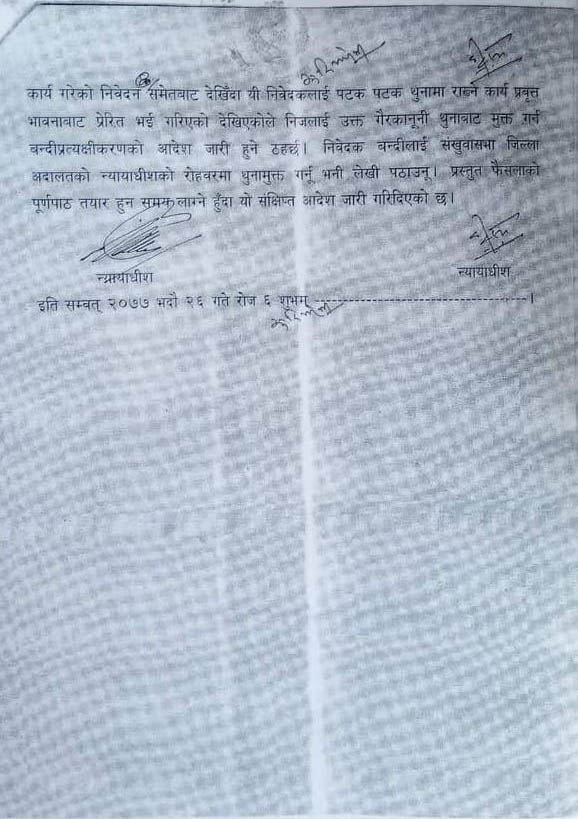 कार्य गरेको निवेदन समेतबाट देखिँदा यी निवेदकलाई पटक पटक थुनामा राख्ने कार्य प्रवृत्त
भावनाबाट प्रेरित भई गरिएको देखिएकोले निजलाई उक्त गैरकानूनी थुनाबाट मुक्त गर्न
बन्दीप्रत्यक्षीकरणको आदेश जारी हुने ठहर्छ। निवेदक बन्दीलाई संखुवासभा जिल्ला
अदालतको न्यायाधीशको रोहवरमा थुनामुक्त गर्नू भनी लेखी पठाउनू। प्रस्तुत फैसलाको
पूर्णपाठ तयार हुन समय लाग्ने हुँदा यो संक्षिप्त आदेश जारी गरिदिएको छ।
न्यायाधीश न्यायाधीश
इति सम्वत् २०७७ भदौ २६ गते रोज ६ शुभम् ----------------------------------------।